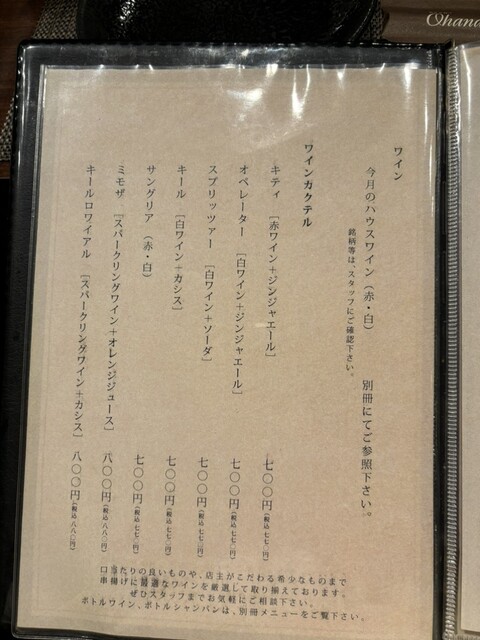 Ohana
ワイン
今月のハウスワイン（赤・白） 別冊にてご参照下さい。※
銘柄等は、スタッフにご確認下さい。
ワインカクテル
キティ ［赤ワイン＋ジンジャエール］ 七〇〇円（税込七七〇円）
オペレーター ［白ワイン＋ジンジャエール］ 七〇〇円（税込七七〇円）
スプリッツァー ［白ワイン＋ソーダ］ 七〇〇円（税込七七〇円）
キール ［白ワイン＋カシス］ 七〇〇円（税込七七〇円）
サングリア （赤・白） 七〇〇円（税込七七〇円）
ミモザ ［スパークリングワイン＋オレンジジュース］ 八〇〇円（税込八八〇円）
キールロワイアル ［スパークリングワイン＋カシス］ 八〇〇円（税込八八〇円）
口当たりの良いものや、店主がこだわる希少なものまで
串揚げに最適なワインを厳選して取り揃えております。
ぜひスタッフまでお気軽にご相談下さい。
ボトルワイン、ボトルシャンパンは、別冊メニューをご覧下さい。